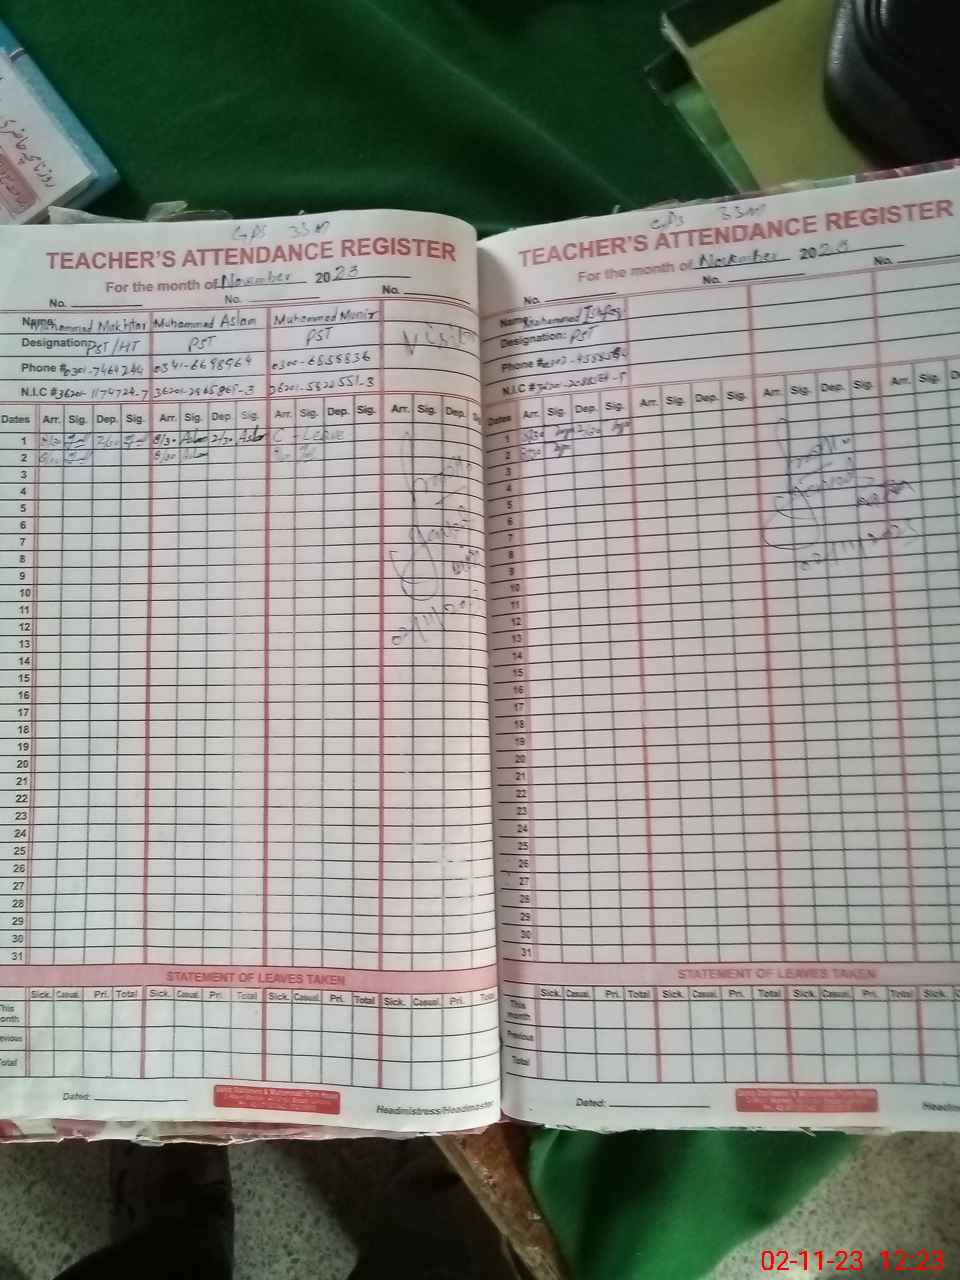 GPS 33M
TEACHER'S ATTENDANCE REGISTER
For the month of November 2023
No. No. No.
Name: Muhammad Mukhtar Muhammad Aslam Muhammad Munir
Designation: PST/HT PST PST
Phone # 0341-6698964 0300-6858836
N.I.C #
Visitor
Dates Arr. Sig. Dep. Sig. Arr. Sig. Dep. Sig. Arr. Sig. Dep. Sig. Arr. Sig. Dep.
1 8/30 2/30 8/30 Aslam 2/30 Aslam C - Leave
2 8/30 Aslam
3
4
5
6
7
8
9
10
11
12
13
14
15
16
17
18
19
20
21
22
23
24
25
26
27
28
29
30
31
02/11/2023
STATEMENT OF LEAVES TAKEN
Sick. Casual. Pri. Total Sick. Casual. Pri. Total Sick. Casual. Pri. Total Sick. Casual. Pri. Total
This month
Previous
Total
Dated:
Headmistress/Headmaster
GPS 33M
TEACHER'S ATTENDANCE REGISTER
For the month of November 2023
No. No. No.
Name: Muhammad Ishfaq
Designation: PST
Phone #
N.I.C #
Dates Arr. Sig. Dep. Sig. Arr. Sig. Dep. Sig. Arr. Sig. Dep. Sig. Arr. Sig.
1 8/30 2/30
2 8/30
3
4
5
6
7
8
9
10
11
12
13
14
15
16
17
18
19
20
21
22
23
24
25
26
27
28
29
30
31
02/11/2023
STATEMENT OF LEAVES TAKEN
Sick. Casual. Pri. Total Sick. Casual. Pri. Total Sick. Casual. Pri. Total Sick.
This month
Previous
Total
Dated:
02-11-23 12:23